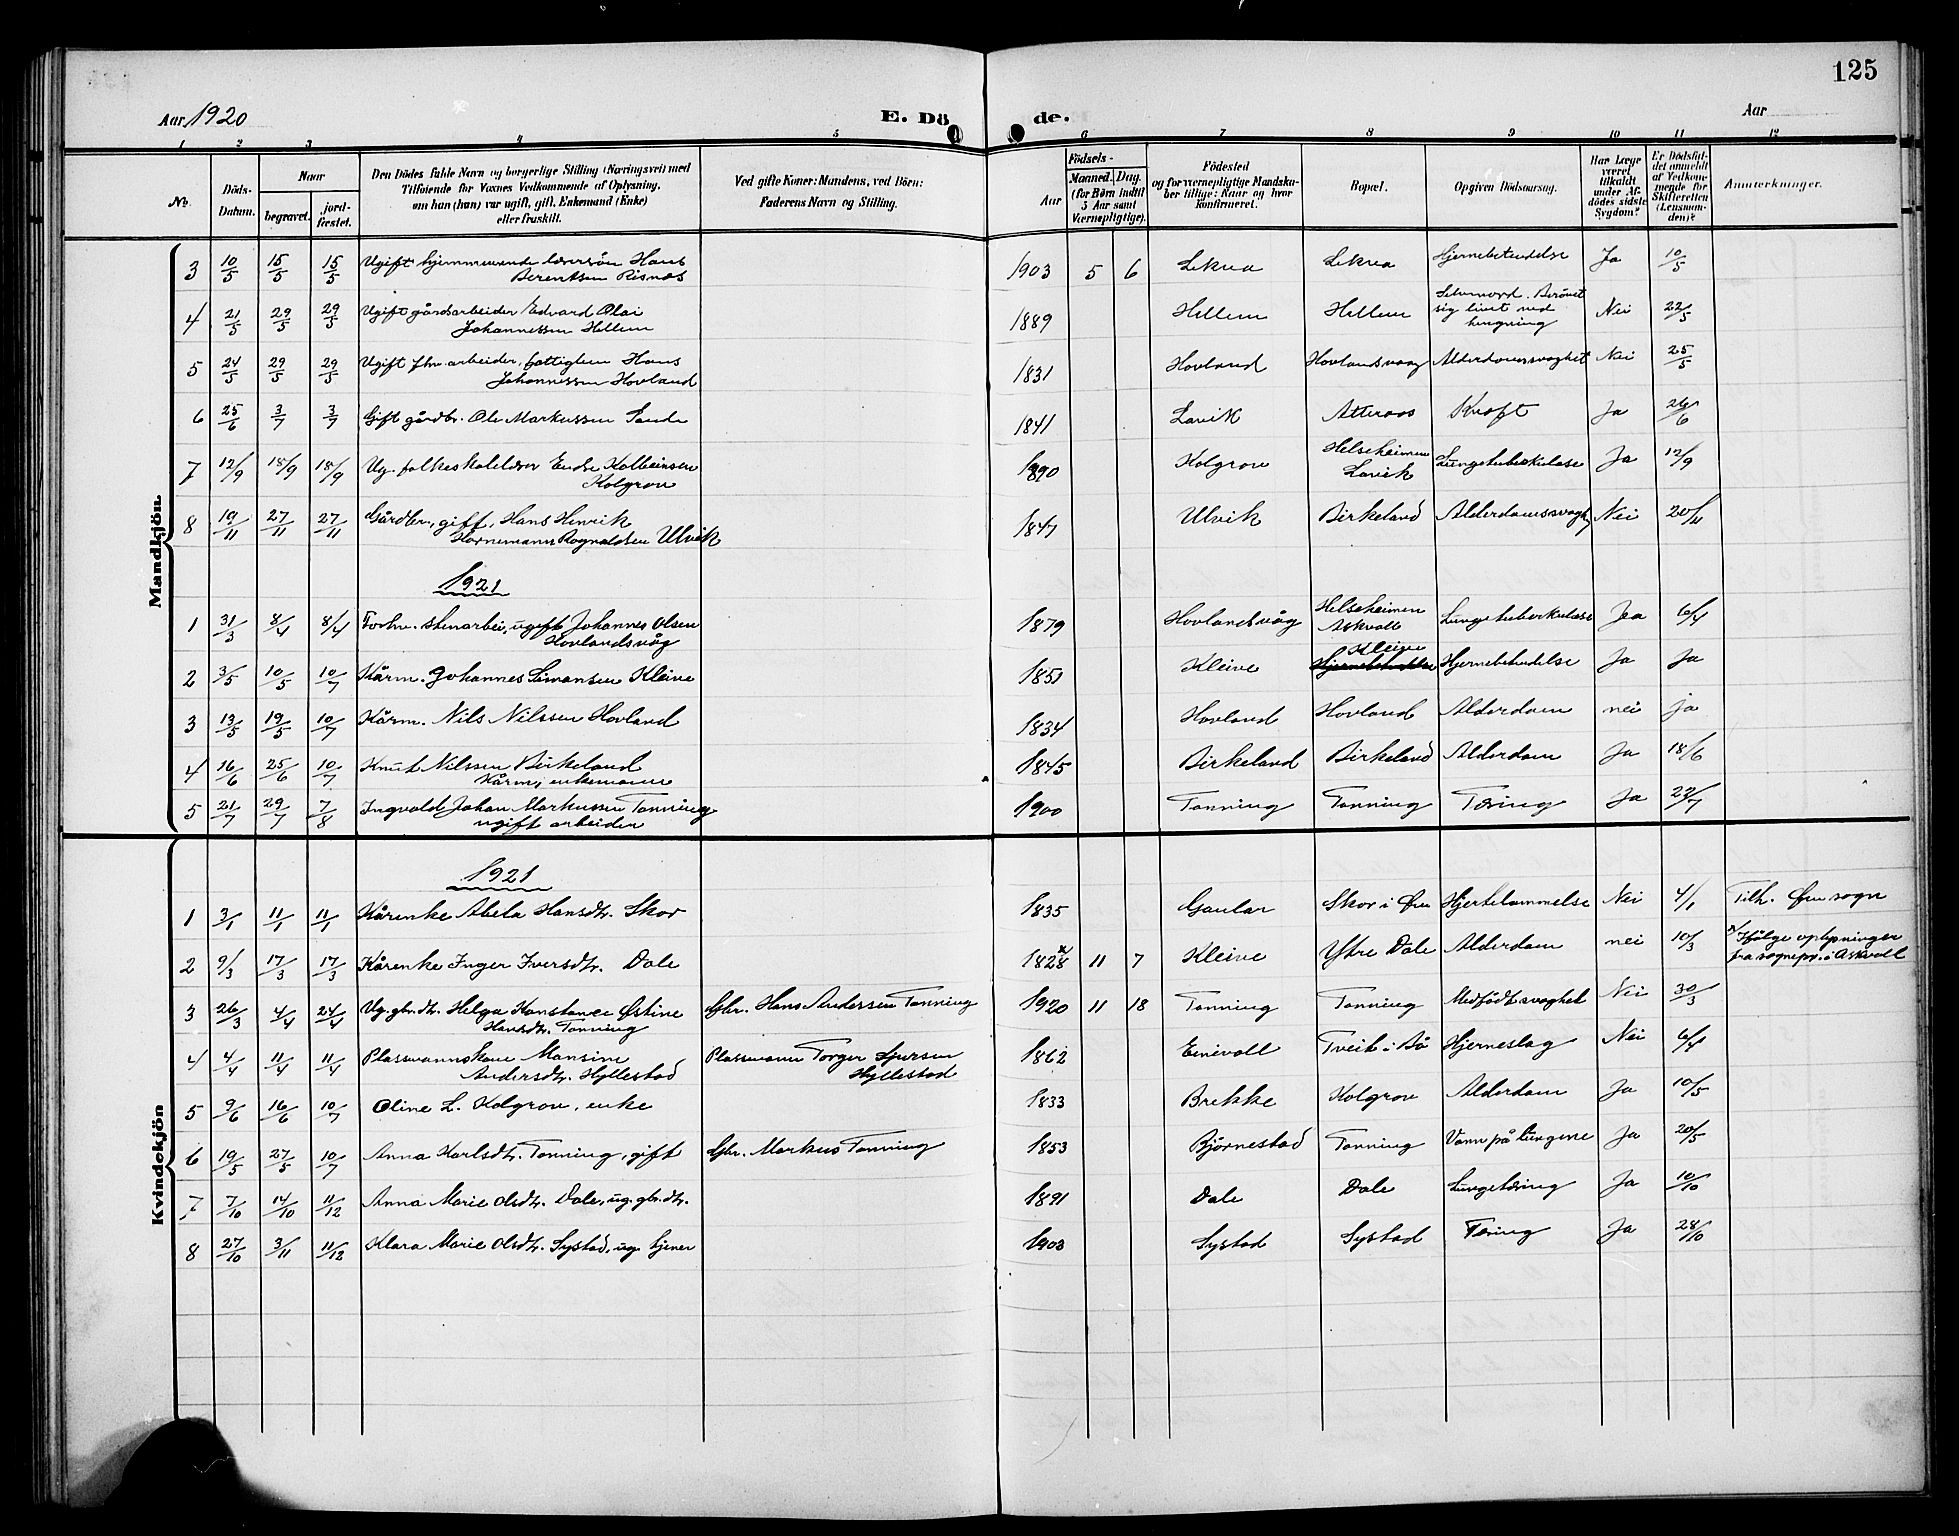 125
Aar 1920
E. Dö
de.
Aar
1 2 3 4 5 6 7 8 9 10 11 12
No.
Döds-Datum.
Naar
begravet.
jord-fæstet.
Den Dödes fulde Navn og borgerlige Stilling (Næringsvei) med
Tilføiende for Voxnes Vedkommende af Oplysning,
om han (hun) var ugift, gift, Enkemand (Enke)
eller fraskilt.
Ved gifte Koner: Mandens, ved Börn:
Faderens Navn og Stilling.
Aar
Födsels-
Maaned. Dag.
(for Börn indtil
5 Aar samt
Værnepligtige).
Födested
og for værnepligtige Mandska-
ber tillige: Naar og hvor
konfirmeret.
Bopæl.
Opgiven Dödsaarsag.
Har Læge
været
tilkaldt
under Af-
dødes sidste
Sygdom?
Er Dödsfal-
det anmeldt
af Vedkom-
mende for
Skifteretten
(Lensman-
den)?
Anmerkninger.
Mandkjön
3 10/5 15/5 15/5 Ugift hjemmeværende Hans
Berentsen Risnes 1903 5 6 Lekva Lekva Hjernebetendelse Ja 10/5
4 21/5 29/5 29/5 Ugift gårdsarbeider Edvard Olai
Johannessen Hellem 1889 Hellem Hellem Selvmord. Berövet
sig livet ved
hengning Nei 22/5
5 24/5 29/5 29/5 Ugift fhv. arbeider, fattiglem Hans
Johannessen Hovland 1831 Hovland Hovlandsvaag Alderdomssvaghet Nei 25/5
6 25/6 3/7 3/7 Gift gårdbr. Ole Markussen Sande 1841 Lavik Atteraas Kræft Ja 26/6
7 12/9 18/9 18/9 Ug. folkeskolelærer Endre Kolbeinsen
Kolgrov 1890 Kolgrov Helseheimen
Lavik Lungetuberkulose Ja 12/9
8 19/11 27/11 27/11 Gårdbr., gift, Hans Henrik
Hornemann Rognaldsen Ulvik 1847 Ulvik Birkeland Alderdomssvagh. Nei 20/11
1921
1 31/3 8/4 8/4 Forhv. stenarbei, ugift Johannes Olsen
Hovlandsvåg 1879 Hovlandsvåg Helseheimen
Askvoll Lungetuberkulose Jea 6/4
2 3/5 10/5 10/7 Kårm. Johannes Simonsen Kleive 1851 Kleive Kleive Hjernebetendelse Ja Ja
3 13/5 19/5 10/7 Kårm. Nils Nilssen Hovland 1834 Hovland Hovland Alderdom nei ja
4 16/6 25/6 10/7 Knut Nilssen Birkeland
Kårm, enkemann 1845 Birkeland Birkeland Alderdom Ja 18/6
5 21/7 29/7 7/8 Ingvald Johan Markussen Tonning
ugift arbeider 1900 Tonning Tonning Tæring Ja 22/7
Kvindekjön
1921
1 3/1 11/1 11/1 Kårenke Abela Hansdtr. Skor 1835 Gaular Skor i Øen Hjertelammelse Nei 4/1 Tilh. Øen sogn
2 9/3 17/3 17/3 Kårenke Inger Iversdtr. Dale x) 1828 11 7 Kleive Ytre Dale Alderdom nei 10/3 x) Ifølge oplysninger
fra sognepr. i Askvoll
3 26/3 4/4 24/4 Ug. gbr.dtr. Helga Konstance Østine
Hansdtr. Tonning Gbr. Hans Andersen Tonning 1920 11 18 Tonning Tonning Medfödt svaghet Nei 30/3
4 4/4 11/4 11/4 Plassmannskone Mansine
Andersdtr. Hyllestad Plassmann Torger Sjursen
Hyllestad 1862 Einevoll Tveit i Bö Hjerneslag Nei 6/4
5 9/6 16/6 10/7 Oline L. Kolgrov, enke 1833 Brekke Kolgrov Alderdom Ja 10/5
6 19/5 27/5 10/7 Anna Karlsdtr. Tonning, gift Gbr. Markus Tonning 1853 Bjørnestad Tonning Vann på lungene Ja 20/5
7 7/10 14/10 11/12 Anna Marie Olsdtr. Dale, ug. gbr.dtr. 1891 Dale Dale Lungetæring Ja 10/10
8 27/10 3/11 11/12 Klara Marie Olsdtr. Systad, ug. tjener 1903 Systad Systad Tæring Ja 28/10